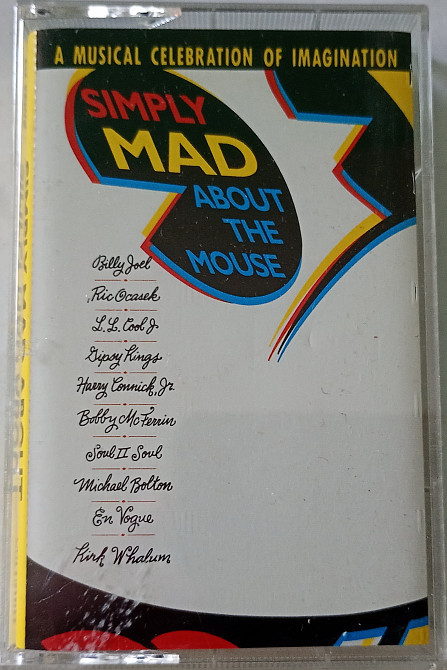 A MUSICAL CELEBRATION OF IMAGINATION
SIMPLY
MAD
ABOUT
THE
MOUSE
Billy Joel
Ric Ocasek
L.L. Cool J
Gipsy Kings
Harry Connick, Jr.
Bobby McFerrin
Soul II Soul
Michael Bolton
En Vogue
Kirk Whalum